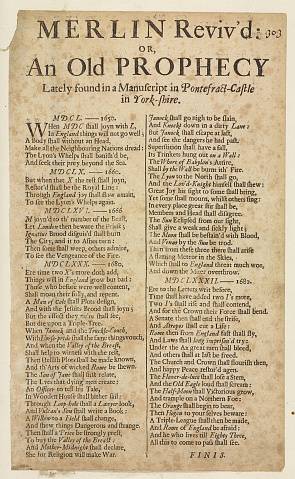 MERLIN Reviv'd:
303
OR,
An Old PROPHECY
Lately found in a Manuscript in Pontefract-Castle
in York-shire.
MDCL. —— 1650.
WHen MDC shall joyn with L,
In England things will not go well;
A Body shall without an Head,
Make all the Neighbouring Nations dread:
The Lyon's Whelps shall banish'd be,
And seek their prey beyond the Sea.
MDCLX. —— 1660.
But when that X the rest shall joyn,
Restor'd shall be the Royal Line:
Through England joy shall then amain,
To see the Lyon's Whelps again.
MDCLXVI. —— 1666
M joyn'd to the number of the Beast,
Let London then beware the Priest;
Ignatius Brood disguis'd shall burn
The City, and it to Ashes turn:
Then some shall weep, others admire,
To see the Vengeance of the Fire.
MDCLXXX. —— 1680.
Ere time two X's more doth add,
Things will in England grow but bad:
Those who before were well content,
Shall mourn their folly, and repent.
A Man of Oak shall Plots design,
And with the Jesuits Brood shall joyn;
But the effect they ne're shall see,
But die upon a Triple-Tree.
When Tanned, and the Touch,
With
And when the Valley of the Breast,
Shall help to witness which the rest,
Then Hellish Plots shall be made known,
And th' Arts of wicked Rome be shown.
The Son of Fame shall first relate,
The Lives that dying next create:
An Officer to tell his Tale,
In Wooden House shall hither sail:
Through Loop-hole shall a Lawyer look,
And Vulcan's Son shall write a Book:
A Willow to a Field shall change,
And shew things Dangerous and strange.
Then shall a Price be strongly prest,
To buy the Valley of the Breast:
And Mother-Midnight shall declare,
She for Religion will make War.
Janock shall go nigh to be slain,
And Knocks down in a dirty Lane:
But Janock shall escape at last,
And see the dangers he had past.
Superstition shall have a fall,
Its Trinkets hung out on a Wall:
The Whore of Babylon's Attire,
Shall by the Wall be burnt ith' Fire.
The Law to the North shall go,
And the Lord's Knight himself shall shew:
Great Joy his sight to some shall bring,
Yet some shall mourn, whilst others sing:
In every place great stir shall be,
Members and Head shall disagree.
The Sun Eclipsed from our sight,
Shall give a weak and sickly light;
The Moon shall be besmear'd with Blood,
And Venus by the Sun be trod.
Then from these three there shall arise
A flaming Meteor in the Skies,
Which shall to England threat much woe,
And down the Miter overthrow.
MDCLXXXII. —— 1682.
Ere to the Letters writ before,
Time shall have added two I's more,
Two J's shall rise and shall contend,
And for the Crown their Force shall bend.
A Senate then shall end the strife,
And Atropos shall cut a Life:
Rome then from England fast shall fly,
And Laws shall keep supersitry:
Under the Ax great men shall bleed,
And others shall at last be freed.
The Church and Crown shall flourish then,
And happy Peace restor'd agen.
The Flower-de-luce shall lose a Stem,
And the Old Eagle loud shall Scream:
The Half-Moon shall Victorious grow,
And trample on a Northern Foe:
The Orange shall begin to bear,
Then Hogen to your selves beware:
A Triple-League shall then be made,
And Rome of England be afraid:
And he who lives till Eighty Three,
All this to come to pass shall see.
FINIS.